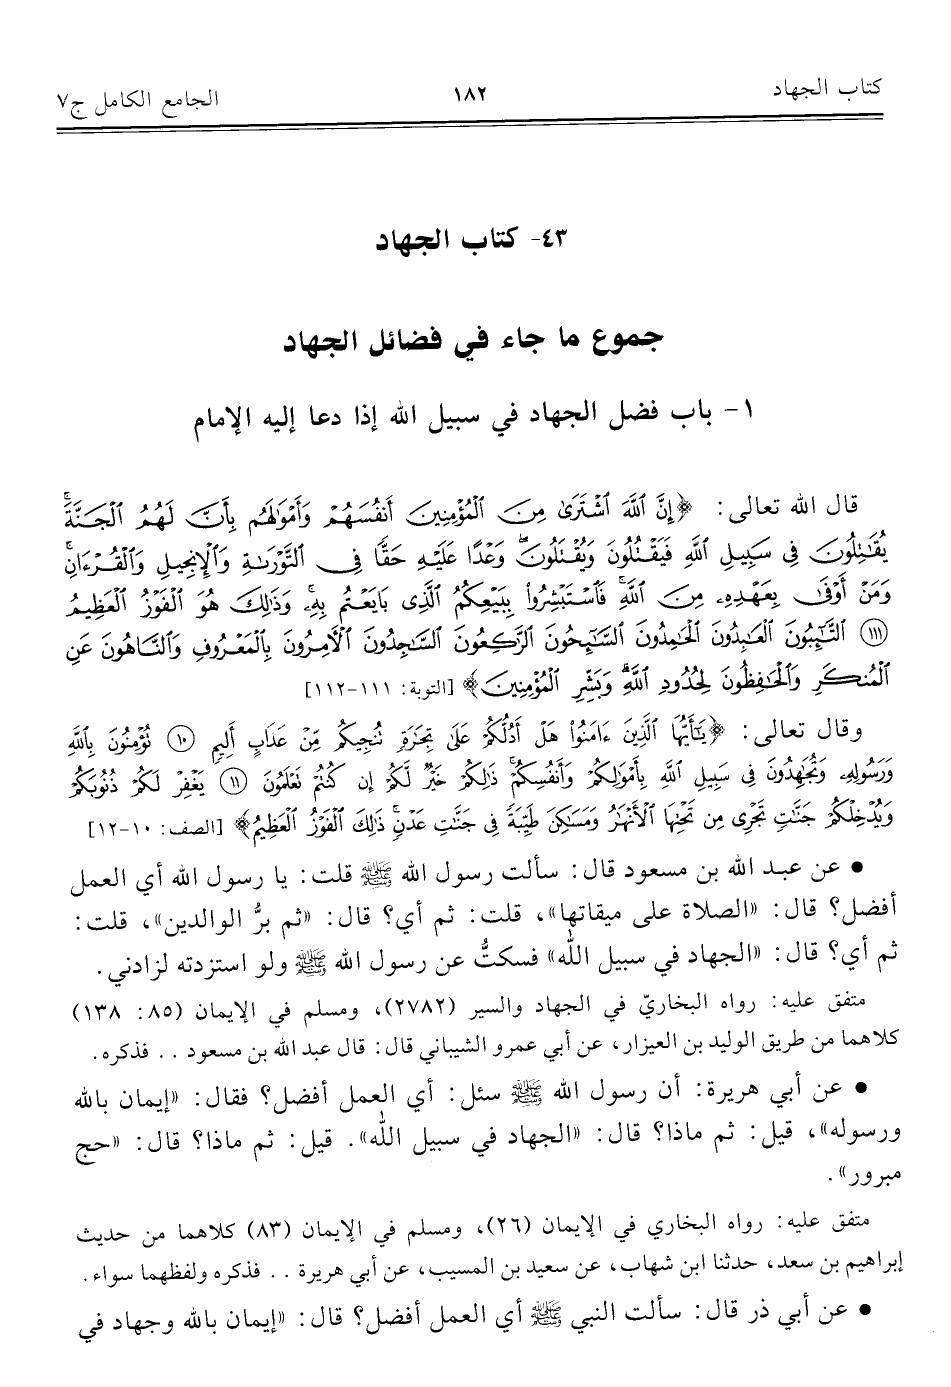 كتاب الجهاد ١٨٢ الجامع الكامل ج٧
٤٣- كتاب الجهاد
جموع ما جاء في فضائل الجهاد
١- باب فضل الجهاد في سبيل الله إذا دعا إليه الإمام
قال الله تعالى: ﴿إِنَّ ٱللَّهَ ٱشْتَرَىٰ مِنَ ٱلْمُؤْمِنِينَ أَنفُسَهُمْ وَأَمْوَٰلَهُم بِأَنَّ لَهُمُ ٱلْجَنَّةَۚ
يُقَٰتِلُونَ فِى سَبِيلِ ٱللَّهِ فَيَقْتُلُونَ وَيُقْتَلُونَۖ وَعْدًا عَلَيْهِ حَقًّا فِى ٱلتَّوْرَىٰةِ وَٱلْإِنجِيلِ وَٱلْقُرْءَانِۚ
وَمَنْ أَوْفَىٰ بِعَهْدِهِۦ مِنَ ٱللَّهِۚ فَٱسْتَبْشِرُوا۟ بِبَيْعِكُمُ ٱلَّذِى بَايَعْتُم بِهِۦۚ وَذَٰلِكَ هُوَ ٱلْفَوْزُ ٱلْعَظِيمُ
(١١١) ٱلتَّٰٓئِبُونَ ٱلْعَٰبِدُونَ ٱلْحَٰمِدُونَ ٱلسَّٰٓئِحُونَ ٱلرَّٰكِعُونَ ٱلسَّٰجِدُونَ ٱلْءَامِرُونَ بِٱلْمَعْرُوفِ وَٱلنَّاهُونَ عَنِ
ٱلْمُنكَرِ وَٱلْحَٰفِظُونَ لِحُدُودِ ٱللَّهِۗ وَبَشِّرِ ٱلْمُؤْمِنِينَ﴾ [التوبة: ١١١-١١٢]
وقال تعالى: ﴿يَٰٓأَيُّهَا ٱلَّذِينَ ءَامَنُوا۟ هَلْ أَدُلُّكُمْ عَلَىٰ تِجَٰرَةٍ تُنجِيكُم مِّنْ عَذَابٍ أَلِيمٍ (١٠) تُؤْمِنُونَ بِٱللَّهِ
وَرَسُولِهِۦ وَتُجَٰهِدُونَ فِى سَبِيلِ ٱللَّهِ بِأَمْوَٰلِكُمْ وَأَنفُسِكُمْۚ ذَٰلِكُمْ خَيْرٌ لَّكُمْ إِن كُنتُمْ تَعْلَمُونَ (١١) يَغْفِرْ لَكُمْ ذُنُوبَكُمْ
وَيُدْخِلْكُمْ جَنَّٰتٍ تَجْرِى مِن تَحْتِهَا ٱلْأَنْهَٰرُ وَمَسَٰكِنَ طَيِّبَةً فِى جَنَّٰتِ عَدْنٍۚ ذَٰلِكَ ٱلْفَوْزُ ٱلْعَظِيمُ﴾ [الصف: ١٠-١٢]
• عن عبد الله بن مسعود قال: سألت رسول الله ﷺ قلت: يا رسول الله أي العمل
أفضل؟ قال: «الصلاة على ميقاتها»، قلت: ثم أي؟ قال: «ثم برُّ الوالدين»، قلت:
ثم أي؟ قال: «الجهاد في سبيل الله» فسكتُّ عن رسول الله ﷺ ولو استزدته لزادني.
متفق عليه: رواه البخاريّ في الجهاد والسير (٢٧٨٢)، ومسلم في الإيمان (٨٥: ١٣٨)
كلاهما من طريق الوليد بن العيزار، عن أبي عمرو الشيباني قال: قال عبد الله بن مسعود .. فذكره.
• عن أبي هريرة: أن رسول الله ﷺ سئل: أي العمل أفضل؟ فقال: «إيمان بالله
ورسوله»، قيل: ثم ماذا؟ قال: «الجهاد في سبيل الله». قيل: ثم ماذا؟ قال: «حج
مبرور».
متفق عليه: رواه البخاري في الإيمان (٢٦)، ومسلم في الإيمان (٨٣) كلاهما من حديث
إبراهيم بن سعد، حدثنا ابن شهاب، عن سعيد بن المسيب، عن أبي هريرة .. فذكره ولفظهما سواء.
• عن أبي ذر قال: سألت النبي ﷺ أي العمل أفضل؟ قال: «إيمان بالله وجهاد في